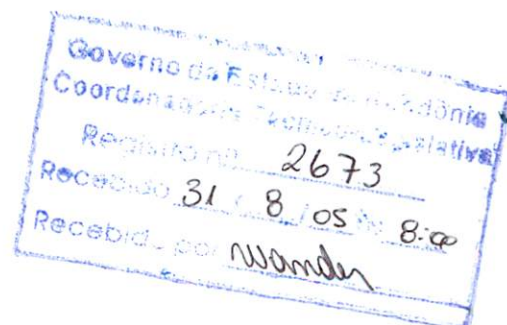 Governo do Estado de Rondônia
Coordenadoria Técnico Legislativa
Registro nº 2673
Recebido 31 / 8 / 05 às 8:00
Recebido por Wander